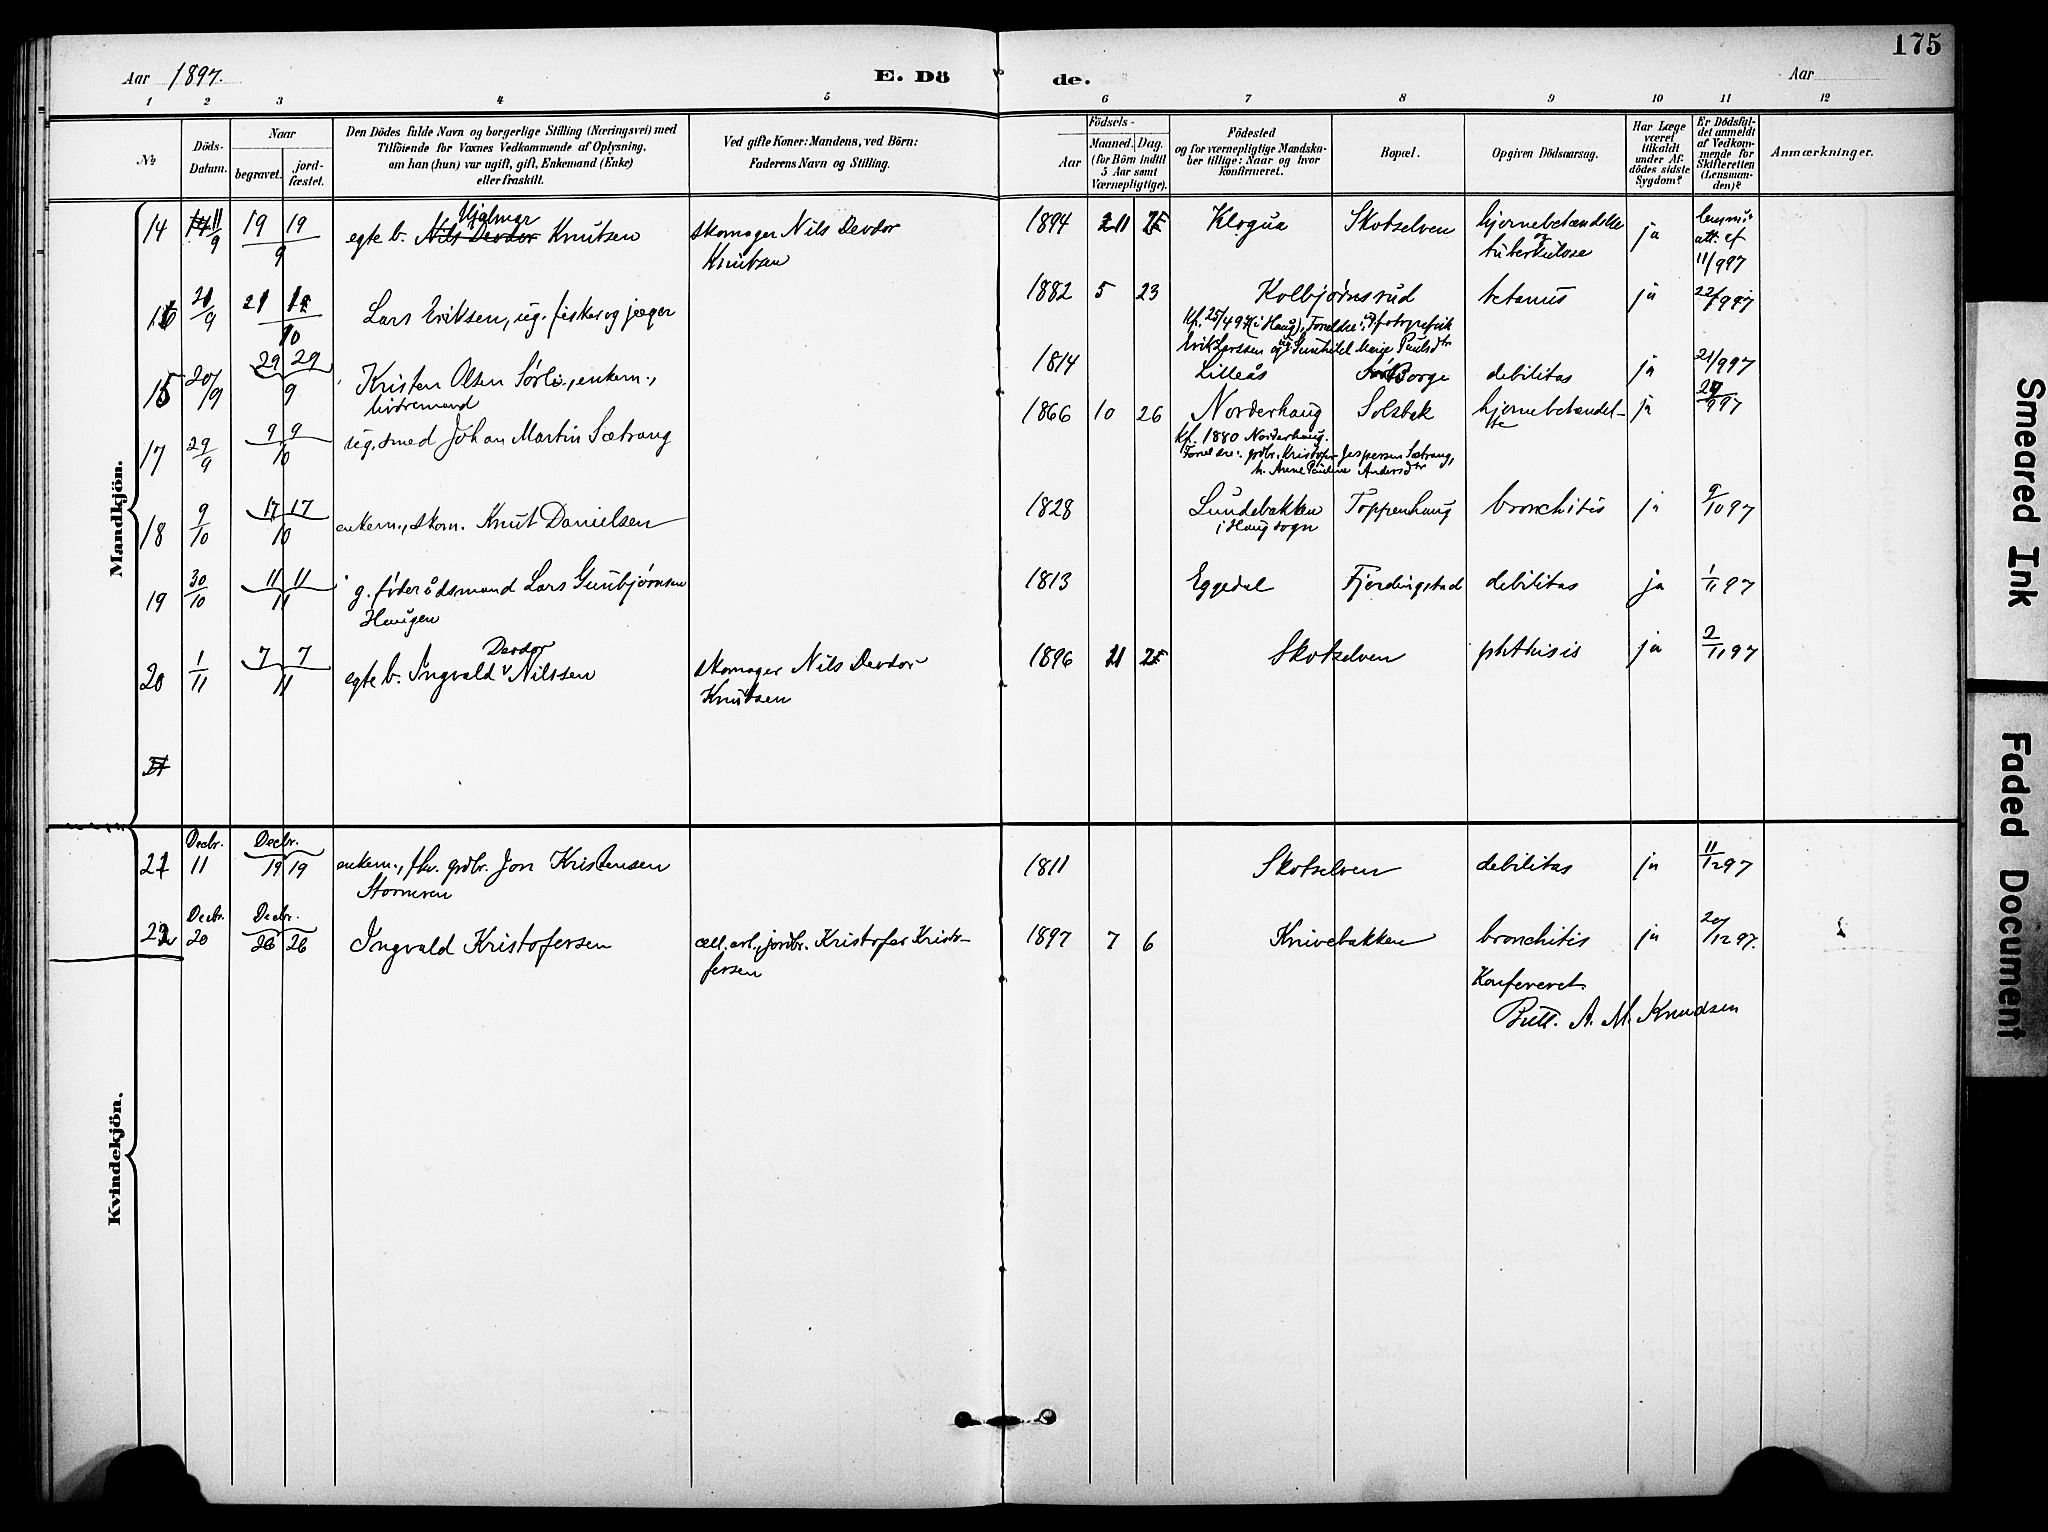 175
Aar 1897. E. Dö de. Aar
1 2 3 4 5 6 7 8 9 10 11 12
No
Döds-Datum.
Naar
begravet.
jord-fæstet.
Den Dödes fulde Navn og borgerlige Stilling (Næringsvei) med
Tilföiende for Voxnes Vedkommende af Oplysning,
om han (hun) var ugift, gift, Enkemand (Enke)
eller fraskilt.
Ved gifte Koner: Mandens, ved Börn:
Faderens Navn og Stilling.
Födsels-
Aar
Maaned. Dag.
(for Börn indtil
5 Aar samt
Værnepligtige).
Födested
og for værnepligtige Mandska-
ber tillige: Naar og hvor
konfirmeret.
Bopæl.
Opgiven Dödsaarsag.
Har Læge
været
tilkaldt
under Af-
dödes sidste
Sygdom?
Er Dödsfal-
det anmeldt
af Vedkom-
mende for
Skifteretten
(Lensman-
den)?
Anmærkninger.
Mandkjön.
Hjalmar
14 11/9 19 19/9 egte b. Nils Devdor Knutsen skomager Nils Devdor 1894 Klogua Skotselven hjernebetændelse ja
Knutsen og tuberkulose att. ef 11/9 97
16 21/9 21 Lars Eriksen, ug. fisker og jæger 1882 5 23 Kolbjørnsrud tetanus ja 22/9 97
10
Erik Larssen og Gunhild Marie Paulsdtr
15 20/9 29 29/9 Kristen Olsen Sørli, enkem., 1814 Lilleås Borge debilitas ja 21/9 97
17 29/9 9 9/10 ug. smed Johan Martin Sætrang 1866 10 26 Norderhaug Solsbak hjernebetændel- ja 29/9 97
se
Kf. 1880 Norderhaug.
Foreldre: grdbr. Kristofer Jespersen Sætrang,
h. Anne Pauline Andersdtr
18 9/10 17 17/10 enkem., skom. Knut Danielsen 1828 Lundebakken Toppenhaug bronchitis ja 9/10 97
i Haug sogn
19 30/10 11 11/11 g. föderådsmand Lars Gunbjørnsen 1813 Eggedal Fjerdingstad debilitas ja 1/11 97
Haugen
Devdor
20 1/11 7 7/11 egte b. Ingvald Nilssen skomager Nils Devdor 1896 Skotselven phthisis ja 2/11 97
Knutsen
Decbr. Decbr.
21 11 19 19 enkem., fhv. grdbr. Jon Kristensen 1811 Skotselven debilitas ja 11/12 97
Decbr. Decbr.
22 20 26 26 Ingvald Kristofersen cell. arb., jordbr. Kristofer Kristo- 1897 7 6 Knivebakken bronchitis ja 20/12 97.
fersen
Konfereret
Bull. A. M. Knudsen
Kvindekjön.
Smeared Ink
Faded Document